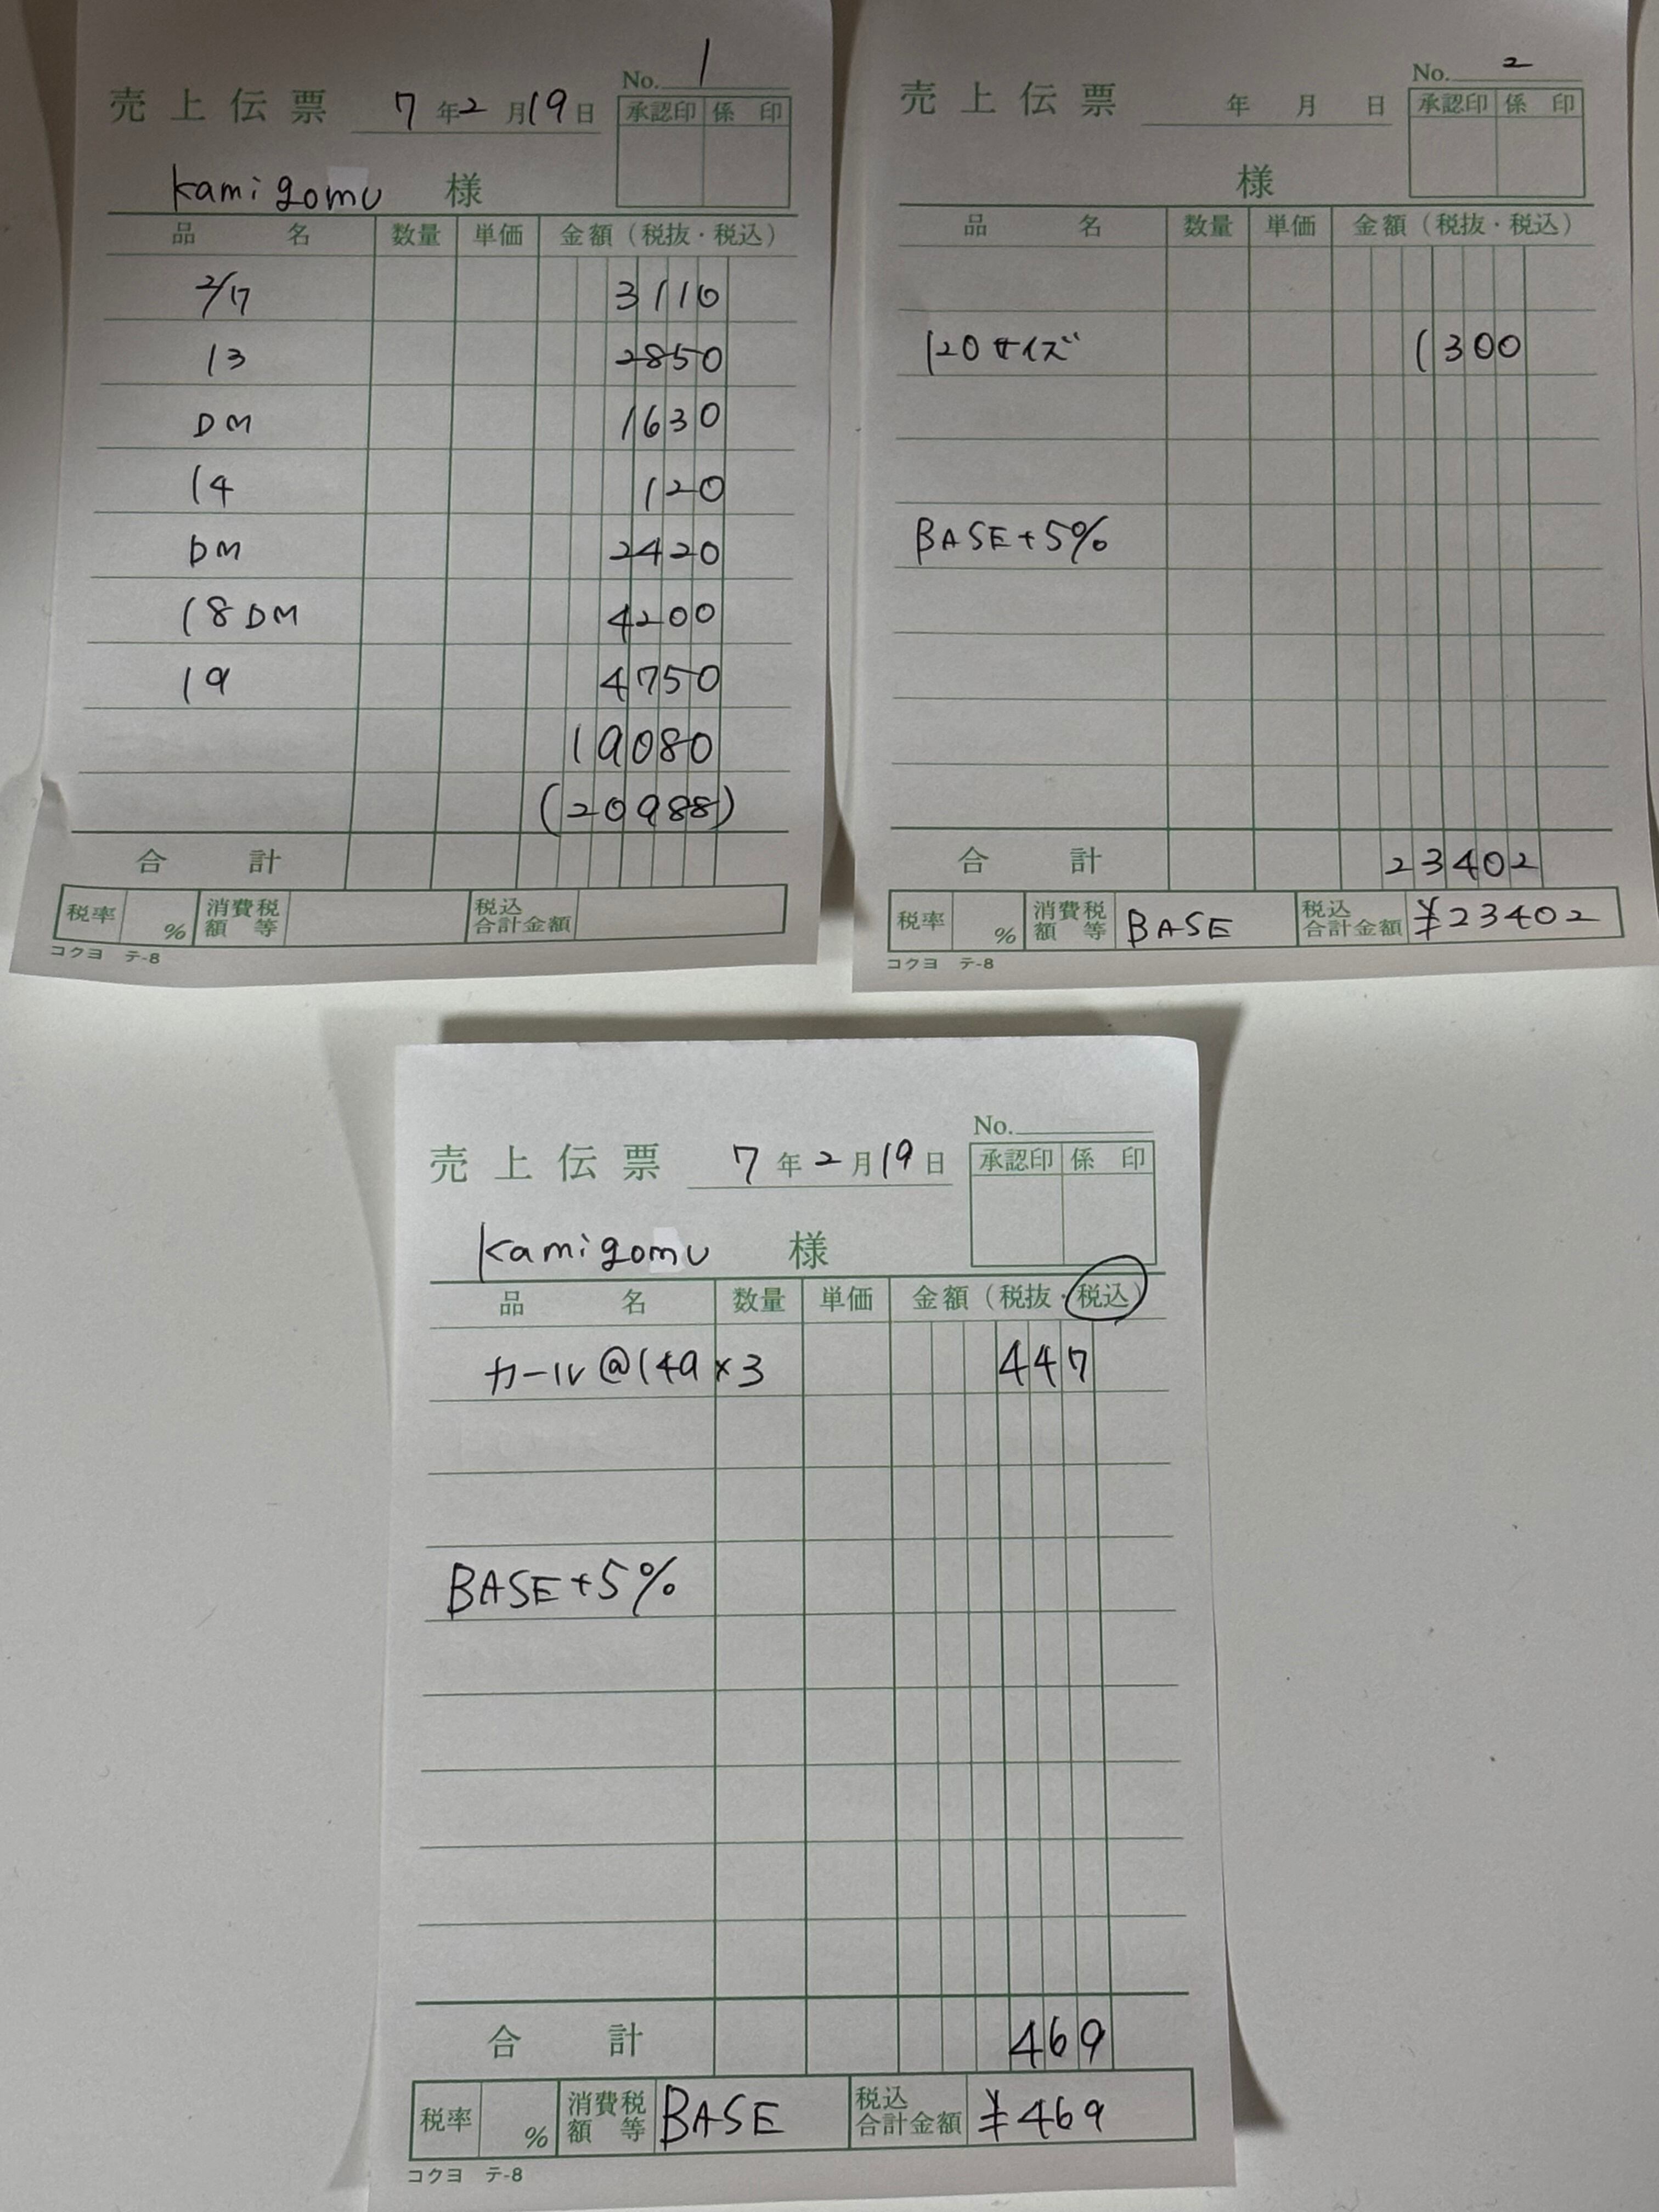 No. 1
売上伝票 7年2月19日
承認印 係印
kamigomu 様
品名 数量 単価 金額(税抜・税込)
2/17 3110
13 2850
DM 1630
14 120
DM 2420
18 DM 4200
19 4750
19080
(20988)
合計
税率 % 消費税額等 税込合計金額
コクヨ テ-8
No. 2
売上伝票 年 月 日
承認印 係印
様
品名 数量 単価 金額(税抜・税込)
120サイズ 1300
BASE+5%
合計 23402
税率 % 消費税額等 BASE 税込合計金額 ¥23402
コクヨ テ-8
No.
売上伝票 7年2月19日
承認印 係印
kamigomu 様
品名 数量 単価 金額(税抜・税込)
カール@149×3 447
BASE+5%
合計 469
税率 % 消費税額等 BASE 税込合計金額 ¥469
コクヨ テ-8